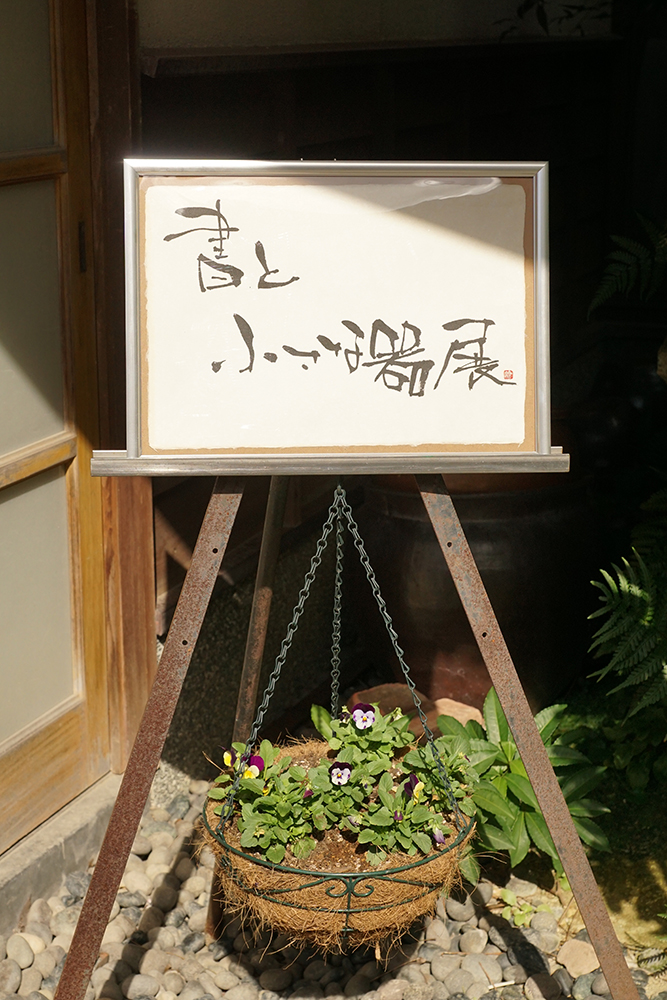 書と
小さな器展